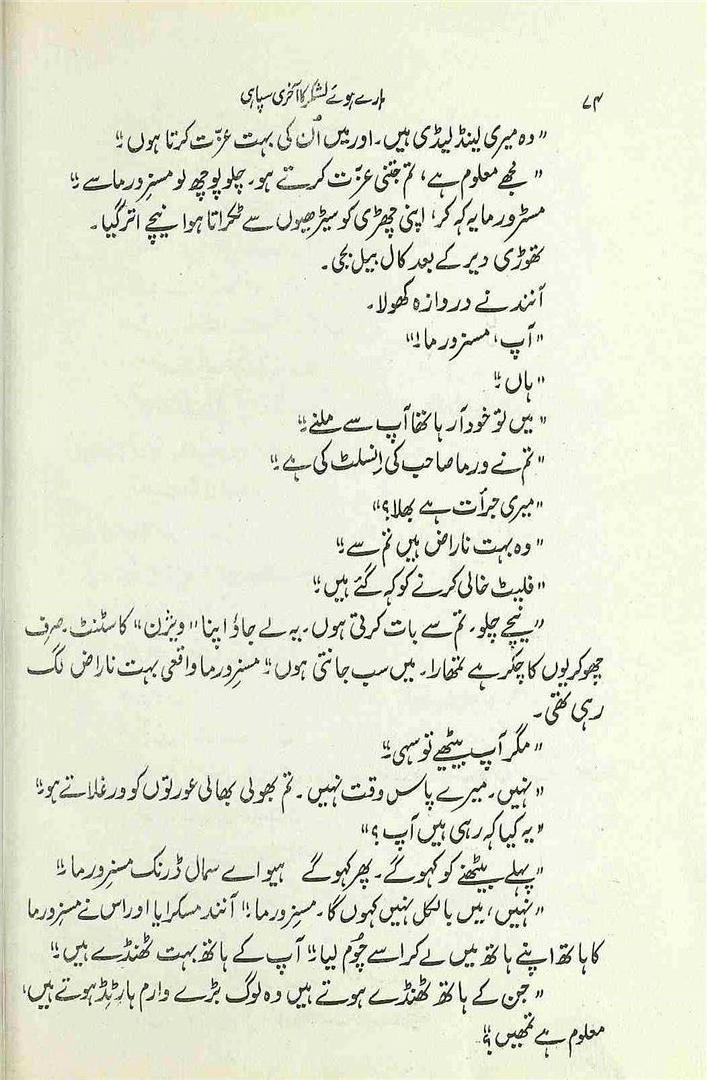 ۷۴ ہارے ہوئے لشکر کا آخری سپاہی
"وہ میری لینڈ لیڈی ہیں۔ اور میں اُن کی بہت عزّت کرتا ہوں۔"
"مجھے معلوم ہے، تم جتنی عزّت کرتے ہو۔ چلو پوچھ لو مسز ورما سے۔"
مسٹر ورما یہ کہہ کر، اپنی چھڑی کو سیڑھیوں سے ٹکراتا ہوا نیچے اتر گیا۔
تھوڑی دیر کے بعد کال بیل بجی۔
آنند نے دروازہ کھولا۔
"آپ، مسز ورما!"
"ہاں۔"
"میں تو خود آ رہا تھا آپ سے ملنے۔"
"تم نے ورما صاحب کی اِنسلٹ کی ہے۔"
"میری جرأت ہے بھلا؟"
"وہ بہت ناراض ہیں تم سے۔"
"فلیٹ خالی کرنے کو کہہ گئے ہیں۔"
"نیچے چلو۔ تم سے بات کرتی ہوں۔ یہ لے جاؤ اپنا "ویژن" کا سٹنٹ۔ صرف
چھوکریوں کا چکر ہے تمھارا۔ میں سب جانتی ہوں۔" مسز ورما واقعی بہت ناراض لگ
رہی تھی۔
"مگر آپ بیٹھیے تو سہی۔"
"نہیں۔ میرے پاس وقت نہیں۔ تم بھولی بھالی عورتوں کو ورغلاتے ہو۔"
"یہ کیا کہہ رہی ہیں آپ؟"
"پہلے بیٹھنے کو کہوگے۔ پھر کہوگے ہیو اے سمال ڈرنک مسز ورما۔"
"نہیں، میں بالکل نہیں کہوں گا۔ مسز ورما۔" آنند مسکرایا اور اس نے مسز ورما
کا ہاتھ اپنے ہاتھ میں لے کر اسے چُوم لیا۔" آپ کے ہاتھ بہت ٹھنڈے ہیں۔"
"جن کے ہاتھ ٹھنڈے ہوتے ہیں وہ لوگ بڑے وارم ہارٹِڈ ہوتے ہیں،
معلوم ہے تمھیں؟"